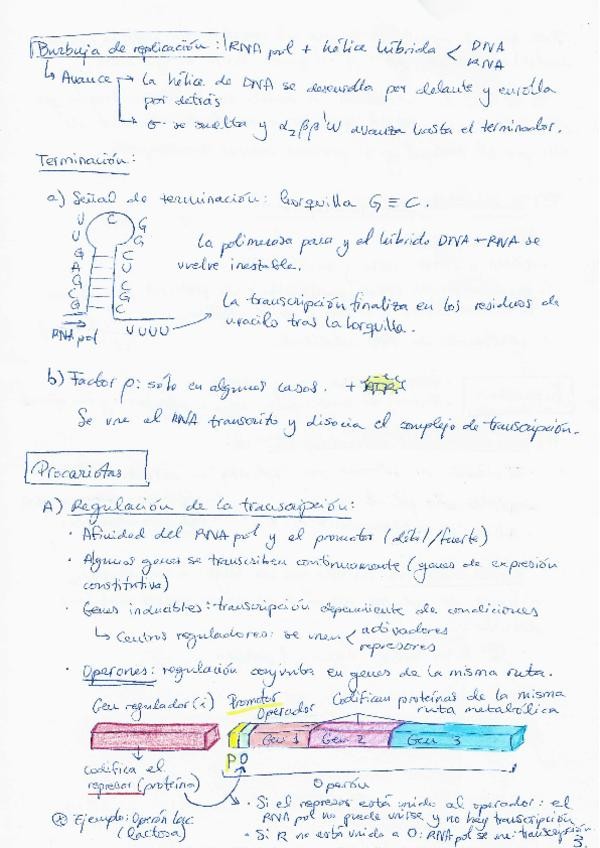 Burbuja de replicación: RNA pol + hélice híbrida < DNA
RNA
↳ Avance → La hélice de DNA se desenrolla por delante y enrolla
por detrás
→ σ se suelta y α₂ββ'ω avanza hasta el terminador.
Terminación:
a) Señal de terminación: horquilla G≡C.
U C G
U G
G C
A U
G C
C G
G C
La polimerasa para y el híbrido DNA-RNA se
vuelve inestable.
La transcripción finaliza en los residuos de
uracilo tras la horquilla.
RNA pol
UUUU
b) Factor ρ: sólo en algunos casos. + ATP
Se une al RNA transcrito y disocia el complejo de transcripción.
Procariotas
A) Regulación de la transcripción:
· Afinidad del RNA pol y el promotor (débil/fuerte)
· Algunos genes se transcriben continuamente (genes de expresión
constitutiva)
· Genes inducibles: transcripción dependiente de condiciones
↳ Centros reguladores: se unen < activadores
represores
· Operones: regulación conjunta en genes de la misma ruta.
Gen regulador (i) Promotor Operador Codifican proteínas de la misma
ruta metabólica
Gen 1 Gen 2 Gen 3
P O
Codifica el
represor (proteína)
Operón
* Ejemplo: Operón lac
(lactosa)
· Si el represor está unido al operador: el
RNA pol no puede unirse y no hay transcripción
· Si R no está unido a O: RNA pol se une: transcripción
3.